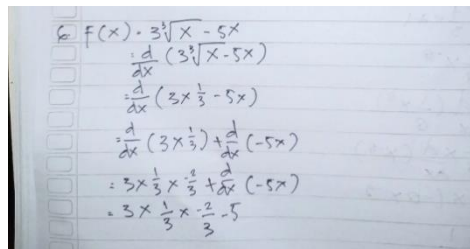 6 F(x) = 3∛x - 5x
= d/dx (3∛x - 5x)
= d/dx (3x 1/3 - 5x)
= d/dx (3x 1/3) + d/dx (-5x)
= 3 x 1/3 x -2/3 + d/dx (-5x)
= 3 x 1/3 x -2/3 - 5